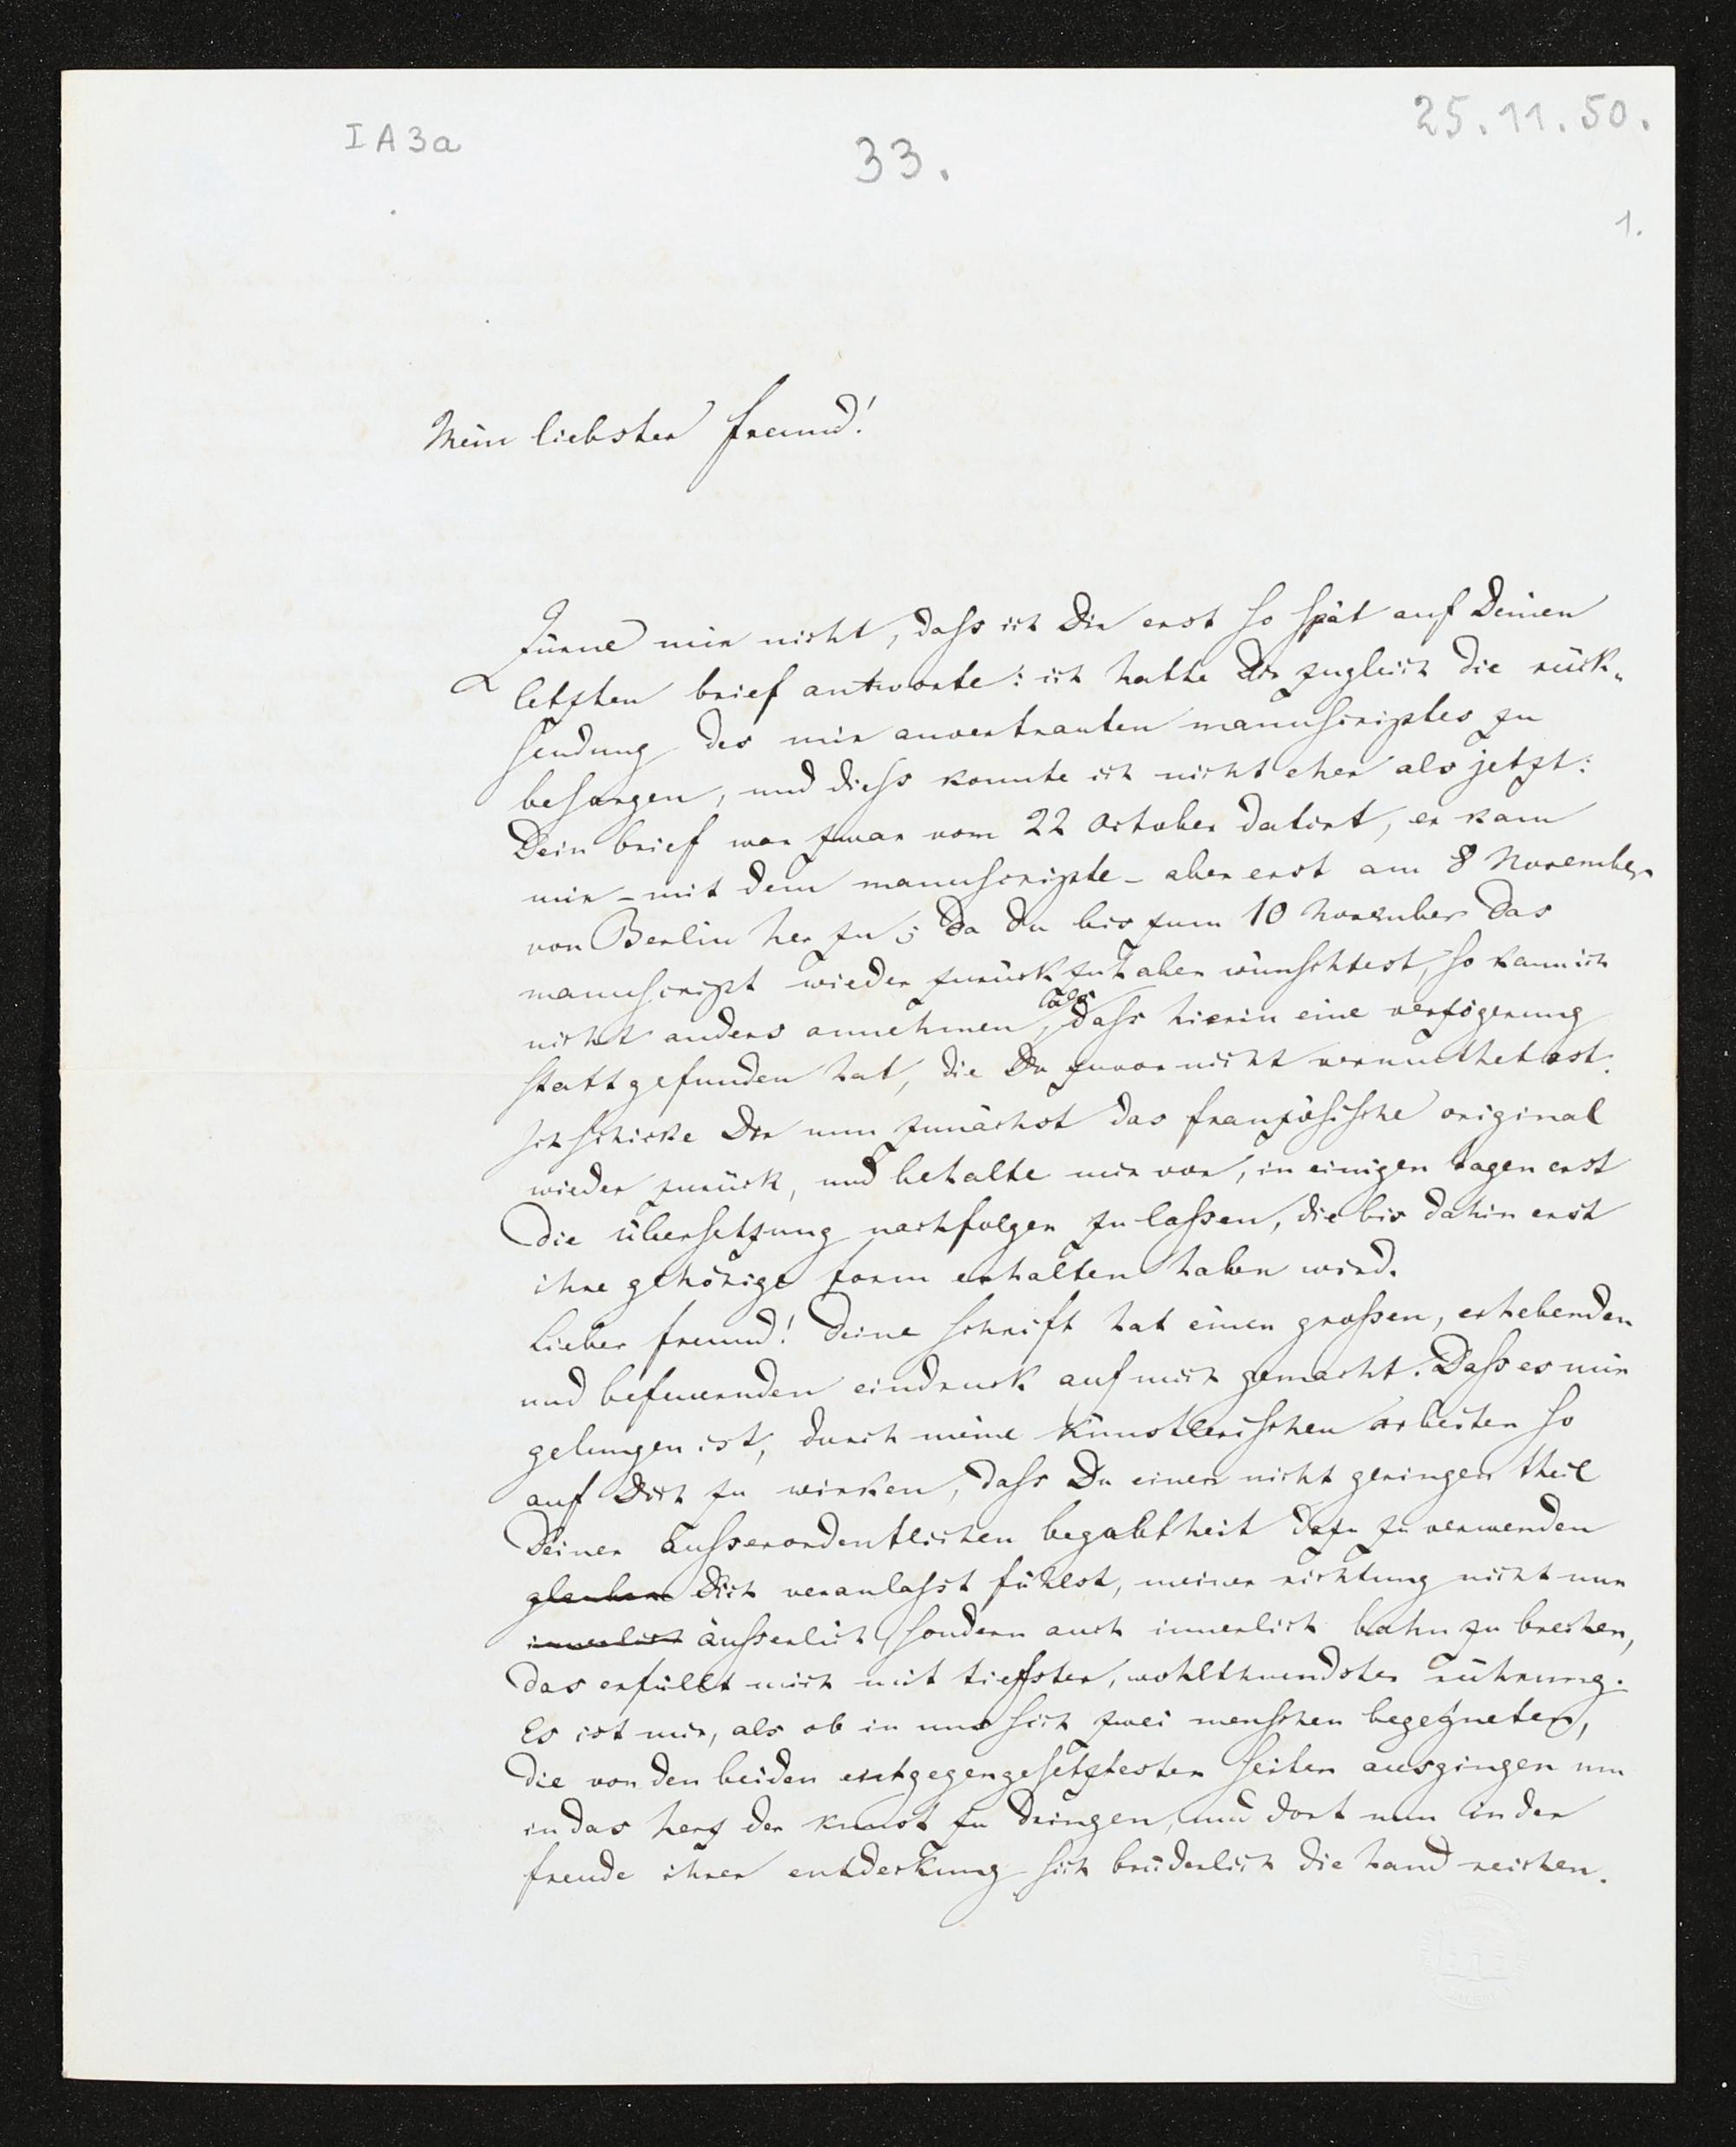 I A 3a
33.
25.11.50.
1.
Mein liebster freund!
Zürne mir nicht, daſs ich Dir erst so spät auf Deinen
letzten brief antworte: ich hatte Dir zugleich die rück-
sendung des mir anvertrauten manuscriptes zu
besorgen, und dieſs konnte ich nicht eher als jetzt:
Dein brief war zwar vom 22 October datirt, er kam
mir – mit dem manuscripte – aber erst am 8 November
von Berlin her zu; da Du bis zum 10 November das
manuscript wieder zurück zu haben wünschtest, so kann ich
nicht anders annehmen, als daſs hierin eine verzögerung
stattgefunden hat, die Du zuvor nicht vermuthetest.
Ich schicke Dir nun zunächst das französische original
wieder zurück, und behalte mir vor, in einigen tagen erst
die übersetzung nachfolgen zu laſsen, die bis dahin erst
ihre gehörige form erhalten haben wird.
Lieber freund! Deine schrift hat einen groſsen, erhebenden
und befeuernden eindruck auf mich gemacht. Daſs es mir
gelungen ist, durch meine künstlerischen arbeiten so
auf Dich zu wirken, daſs Du einen nicht geringen theil
Deiner auſserordentlichen begabtheit dazu zu verwenden
glaubens Dich veranlaſst fühlst, meiner richtung nicht nur
innerlich äuſserlich sondern auch innerlich bahn zu brechen,
das erfüllt mich mit tiefster, wohlthuendster rührung.
Es ist mir, als ob in uns sich zwei menschen begegneten,
die von den beiden entgegengesetztesten seiten ausgingen um
in das herz der kunst zu dringen, und dort nun in der
freude ihrer entdeckung sich brüderlich die hand reichen.